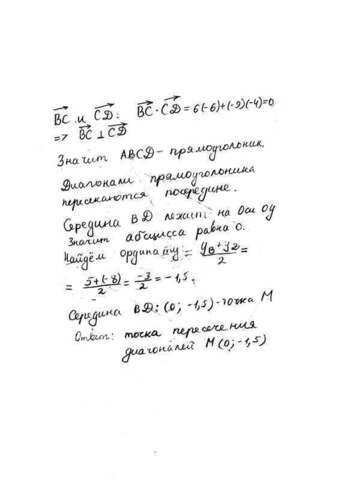 BC и CD: BC · CD = 6(-6)+(-9)(-4)=0
=> BC ⊥ CD
Значит ABCD - прямоугольник.
Диагонали прямоугольника
пересекаются посередине.
Середина BD лежит на Оси Oy
Значит абсцисса равна 0.
Найдём ординату = (yB + yD)/2 =
= (5+(-8))/2 = -3/2 = -1,5.
Середина BD: (0; -1,5) - точка М
Ответ: точка пересечения
диагоналей М (0; -1,5)